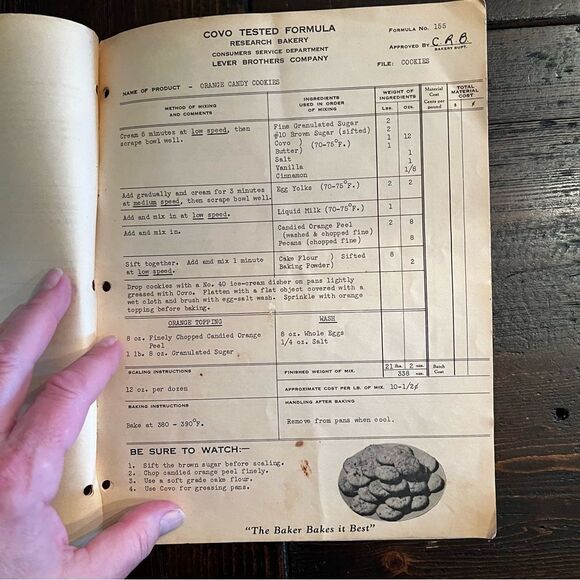 COVO TESTED FORMULA
RESEARCH BAKERY
CONSUMERS SERVICE DEPARTMENT
LEVER BROTHERS COMPANY
FORMULA NO. 155
APPROVED BY C.R.B.
BAKERY SUPT.
FILE: COOKIES
NAME OF PRODUCT - ORANGE CANDY COOKIES
METHOD OF MIXING AND COMMENTS
INGREDIENTS USED IN ORDER OF MIXING
WEIGHT OF INGREDIENTS
LBS. OZS.
Material Cost Cents per pound
TOTAL MATERIAL COST
$ ¢
Cream 5 minutes at low speed, then
scrape bowl well.
Fine Granulated Sugar 2
#10 Brown Sugar (sifted) 2
Covo ) (70-75°F.) 1 12
Butter) 1
Salt 1
Vanilla 1
Cinnamon 1/8
Add gradually and cream for 3 minutes
at medium speed, then scrape bowl well.
Egg Yolks (70-75°F.) 2 2
Add and mix in at low speed.
Liquid Milk (70-75°F.) 1
Add and mix in.
Candied Orange Peel 2 8
(washed & chopped fine)
Pecans (chopped fine) 8
Sift together. Add and mix 1 minute
at low speed.
Cake Flour ) Sifted 8
Baking Powder) 2
Drop cookies with a No. 40 ice-cream disher on pans lightly
greased with Covo. Flatten with a flat object covered with a
wet cloth and brush with egg-salt wash. Sprinkle with orange
topping before baking.
ORANGE TOPPING
8 oz. Finely Chopped Candied Orange
Peel
1 lb. 8 oz. Granulated Sugar
WASH
8 oz. Whole Eggs
1/4 oz. Salt
SCALING INSTRUCTIONS
12 oz. per dozen
FINISHED WEIGHT OF MIX.
21 lbs. 2 ozs.
338 ozs.
Batch Cost
APPROXIMATE COST PER LB. OF MIX. 10-1/2¢
BAKING INSTRUCTIONS
Bake at 380 - 390°F.
HANDLING AFTER BAKING
Remove from pans when cool.
BE SURE TO WATCH:—
1. Sift the brown sugar before scaling.
2. Chop candied orange peel finely.
3. Use a soft grade cake flour.
4. Use Covo for greasing pans.
"The Baker Bakes it Best"